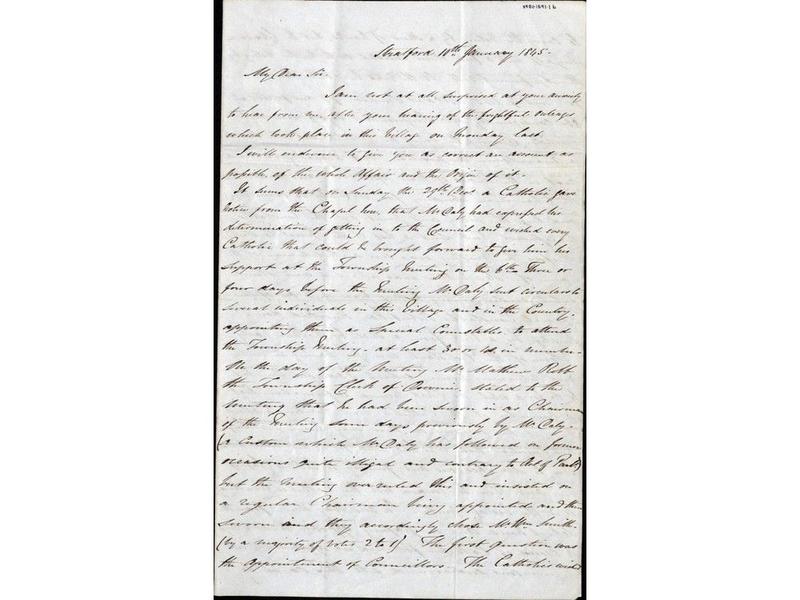 Stratford 10th January 1845.
My Dear Sir.
I am not at all surprised at your anxiety
to hear from me, after your hearing of the frightful outrage
which took place in this Village on Monday last.
I will endeavour to give you as correct an account as
possible of the whole affair and the Origin of it.
It seems that on Sunday the 29th Decr a Catholic gave
notice from the Chapel here, that Mr Daly had expressed his
determination of getting in to the Council and wished every
Catholic that could be brought forward to give him his
support at the Township Meeting on the 6th. Three or
four days before the Meeting Mr Daly sent circulars to
several individuals in this Village and in the Country,
appointing them as Special Constables to attend
the Township Meeting, at least 30 or in number.
On the day of the Meeting Mr Matthew Robb
the Township Clerk of Downie, stated to the
meeting that he had been sworn in as Chairman
of the Meeting some days previously by Mr Daly.
(a Custom which Mr Daly has followed on former
occasions quite illegal and contrary to Act of Parlt)
but the Meeting overruled this and insisted on
a regular Chairman being appointed and then
sworn and they accordingly chose Mr Wm Smith.
(by a majority of votes 2 to 1) The first question was
the appointment of Councillors The Catholics wished